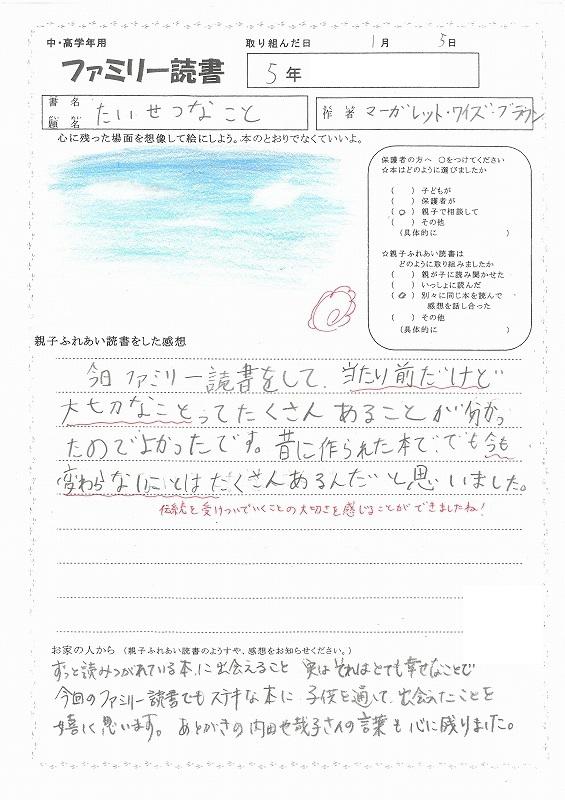 中・高学年用
取り組んだ日 1月 5日
ファミリー読書
5年
書名 題名 たいせつなこと
作者 マーガレット・ワイズ・ブラウン
心に残った場面を想像して絵にしよう。本のとおりでなくていいよ。
保護者の方へ ○をつけてください
☆本はどのように選びましたか
( ) 子どもが
( ) 保護者が
(○) 親子で相談して
( ) その他
(具体的に )
☆親子ふれあい読書は
どのように取り組みましたか
( ) 親が子に読み聞かせた
( ) いっしょに読んだ
(○) 別々に同じ本を読んで
感想を話し合った
( ) その他
(具体的に )
親子ふれあい読書をした感想
今日ファミリー読書をして、当たり前だけど
大切なことってたくさんあることが分かっ
たのでよかったです。昔に作られた本で、でも今も
変わらないことはたくさんあるんだと思いました。
伝統を受けついでいくことの大切さを感じることができましたね!
お家の人から (親子ふれあい読書のようすや、感想をお知らせください。)
ずっと読みつがれている本に出会えること 実はそれはとても幸せなことで
今回のファミリー読書でもステキな本に 子供を通して、出会えたことを
嬉しく思います。 あとがきの内田也哉子さんの言葉も心に残りました。